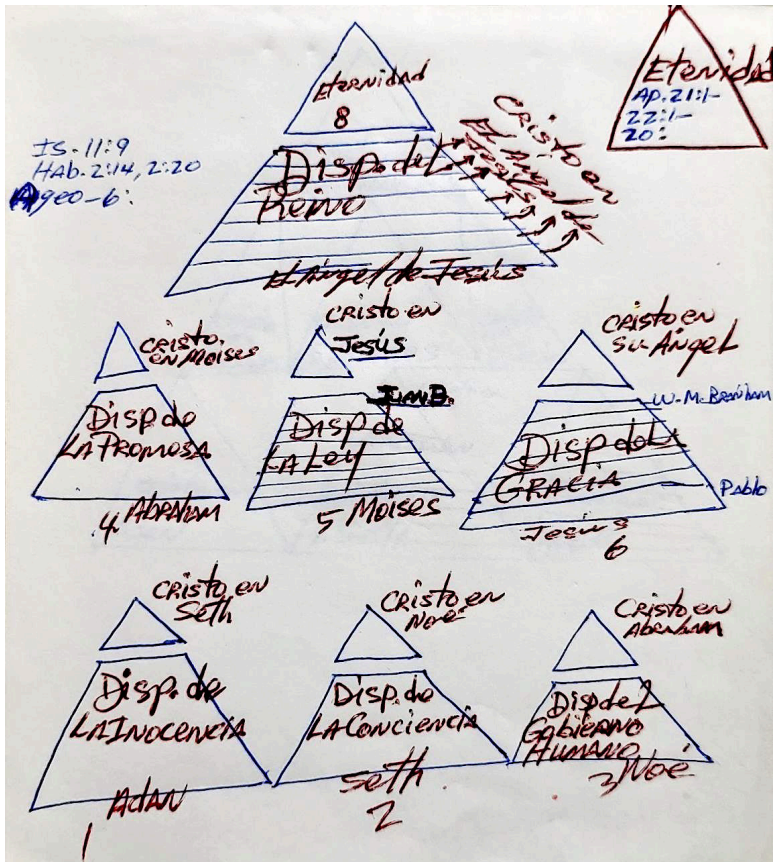 Eternidad
8
Eternidad
Ap. 21:1-
22:1-
20:
IS. 11:9
Hab. 2:14, 2:20
Ageo-6:
Disp. del
Reino
El Ángel de Jesús
Cristo en
El Ángel de
Jesús
Cristo
en Moises
Disp de
LA Promosa
4 Abraham
Cristo en
Jesús
Disp de
LA Ley
5 Moises
Cristo en
Su Ángel
W.M. Branham
Disp de LA
Gracia
Pablo
Jesús
6
Cristo en
Seth
Disp. de
LA Inocencia
Adan
1
Cristo en
Noé
Disp. de
LA Conciencia
Seth
2
Cristo en
Abraham
Disp del
Gobierno
Humano
3 Noé